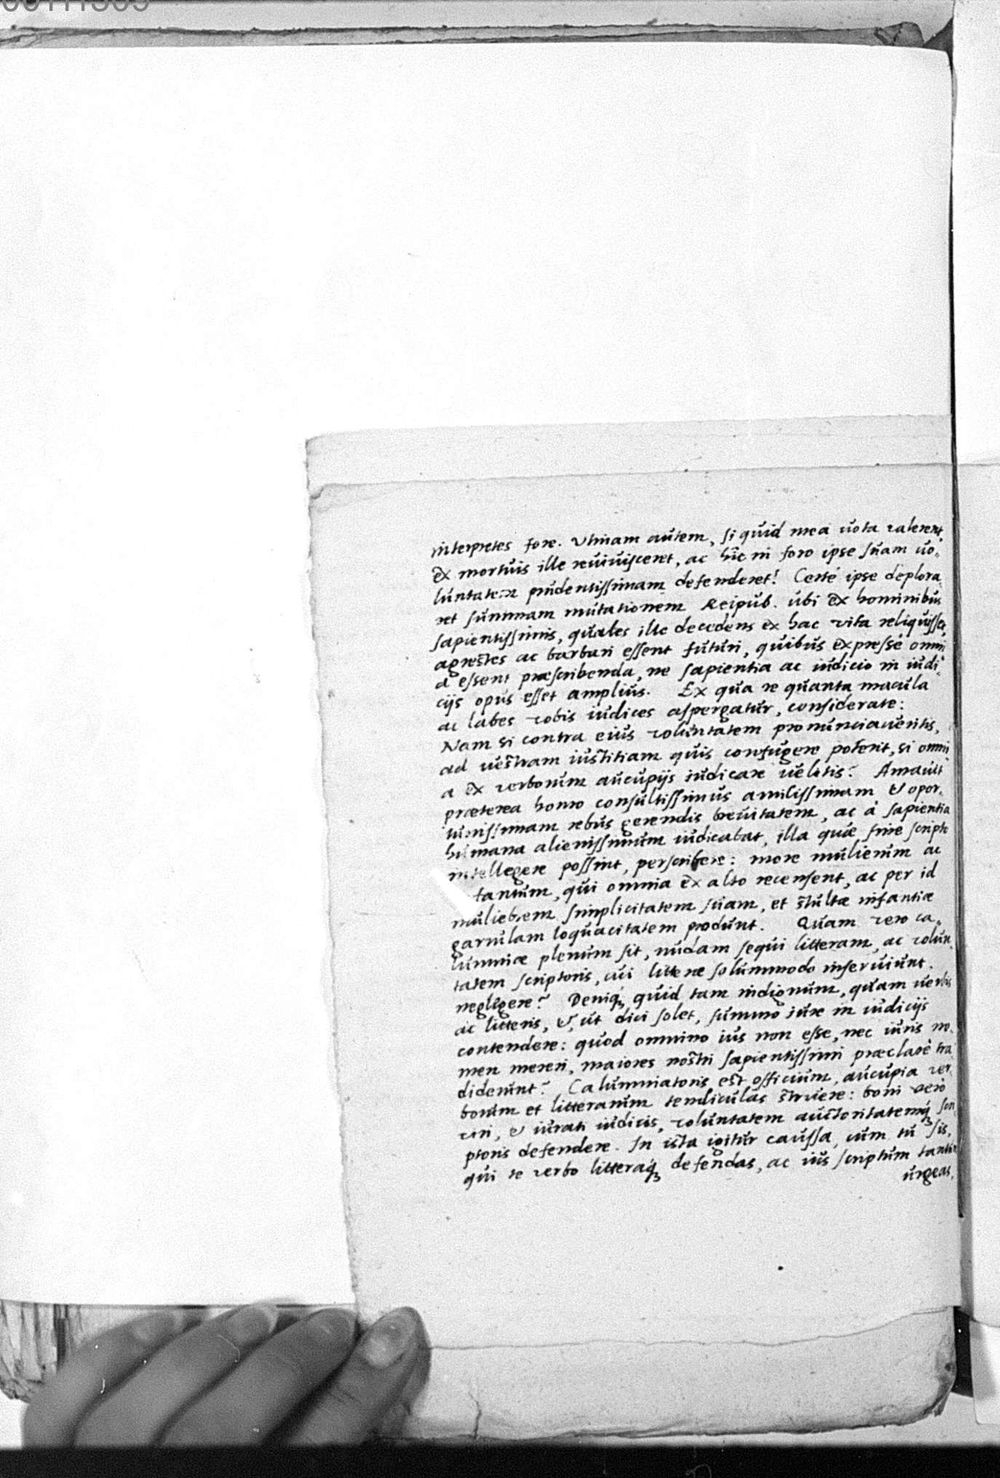 interpretes fore. Utinam autem, si quid mea vota valerent,
ex mortuis ille reuiuisceret, ac hîc in foro ipse suam uo-
luntatem prudentissimam defenderet! Certè ipse deplora
ret summam mutationem Reipub. ubi ex hominibus
sapientissimis, quales ille decedens ex hac vita reliquisset,
agrestes ac barbari essent futuri, quibus expresse omni
a essent præscribenda, ne sapientia ac iudicio in iudi
cijs opus esset amplius. Ex qua re quanta macula
ac labes vobis iudices aspergatur, considerate:
Nam si contra eius voluntatem pronunciaueritis,
ad uestram iustitiam quis confugere poterit, si omni
a ex verborum aucupijs iudicare uelitis? Amauit
præterea homo consultissimus amilissimam & opor-
tunissimam rebus gerendis breuitatem, ac à sapientia
humana alienissimum iudicabat, illa quæ sine scripto
intellegere possint, perscribere: more mulierum ac
tantum, qui omnia ex alto recensent, ac per id
muliebrem simplicitatem suam, et stultæ infantiæ
garrulam loquacitatem produnt. Quam vero ca-
lumniæ plenum sit, nudam sequi litteram, ac volun
tatem scriptoris, cui litteræ solummodo inseruiunt,
negligere? Deniq; quid tam indignum, quam uerbis
ac litteris, &, ut dici solet, summo iure in iudicijs
contendere: quod omnino ius non esse, nec iuris no-
men mereri, maiores nostri sapientissimi præclarè tra
diderunt? Calumniatoris est officium, aucupia ver
borum et litterarum tendiculas struere: boni verò
viri, & iurati iudicis, voluntatem auctoritatemq; scri
ptoris defendere. In ista igitur caussa, cum tu sis,
qui te verbo litteraq; defendas, ac ius scriptum tantum
urgeas,